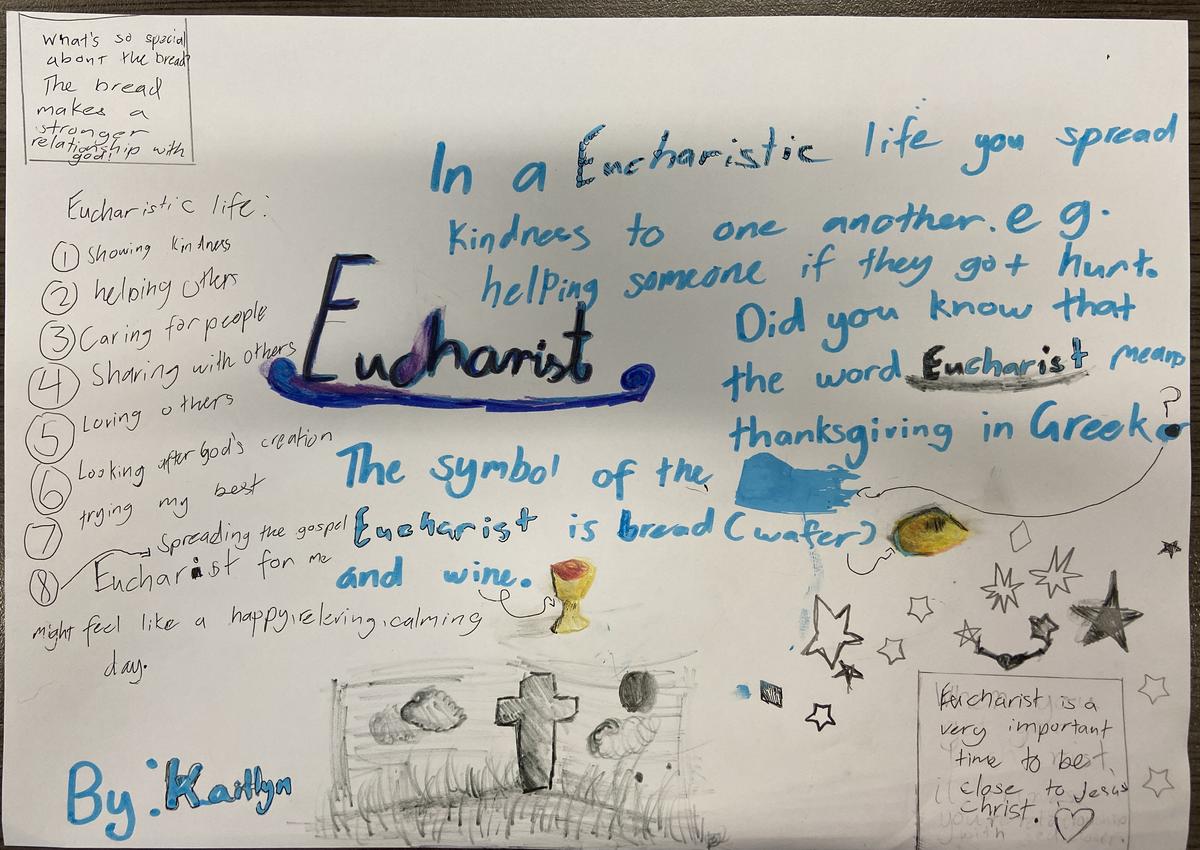 What's so special
about the bread?
The bread
makes a
stronger
relationship with
god!
In a Eucharistic life you spread
kindness to one another. e g.
helping someone if they got hurt.
Eucharistic life:
① Showing kindness
② helping others
③ Caring for people
④ Sharing with others
⑤ Loving others
⑥ Looking after God's creation
⑦ trying my best
⑧ Spreading the gospel
Eucharist
Did you know that
the word Eucharist means
thanksgiving in Greek?
The symbol of the
Eucharist is bread (wafer)
and wine.
Eucharist for me
might feel like a happy, relering, calming
day.
By: Kaitlyn
Eucharist is a
very important
time to be
close to Jesus
Christ.